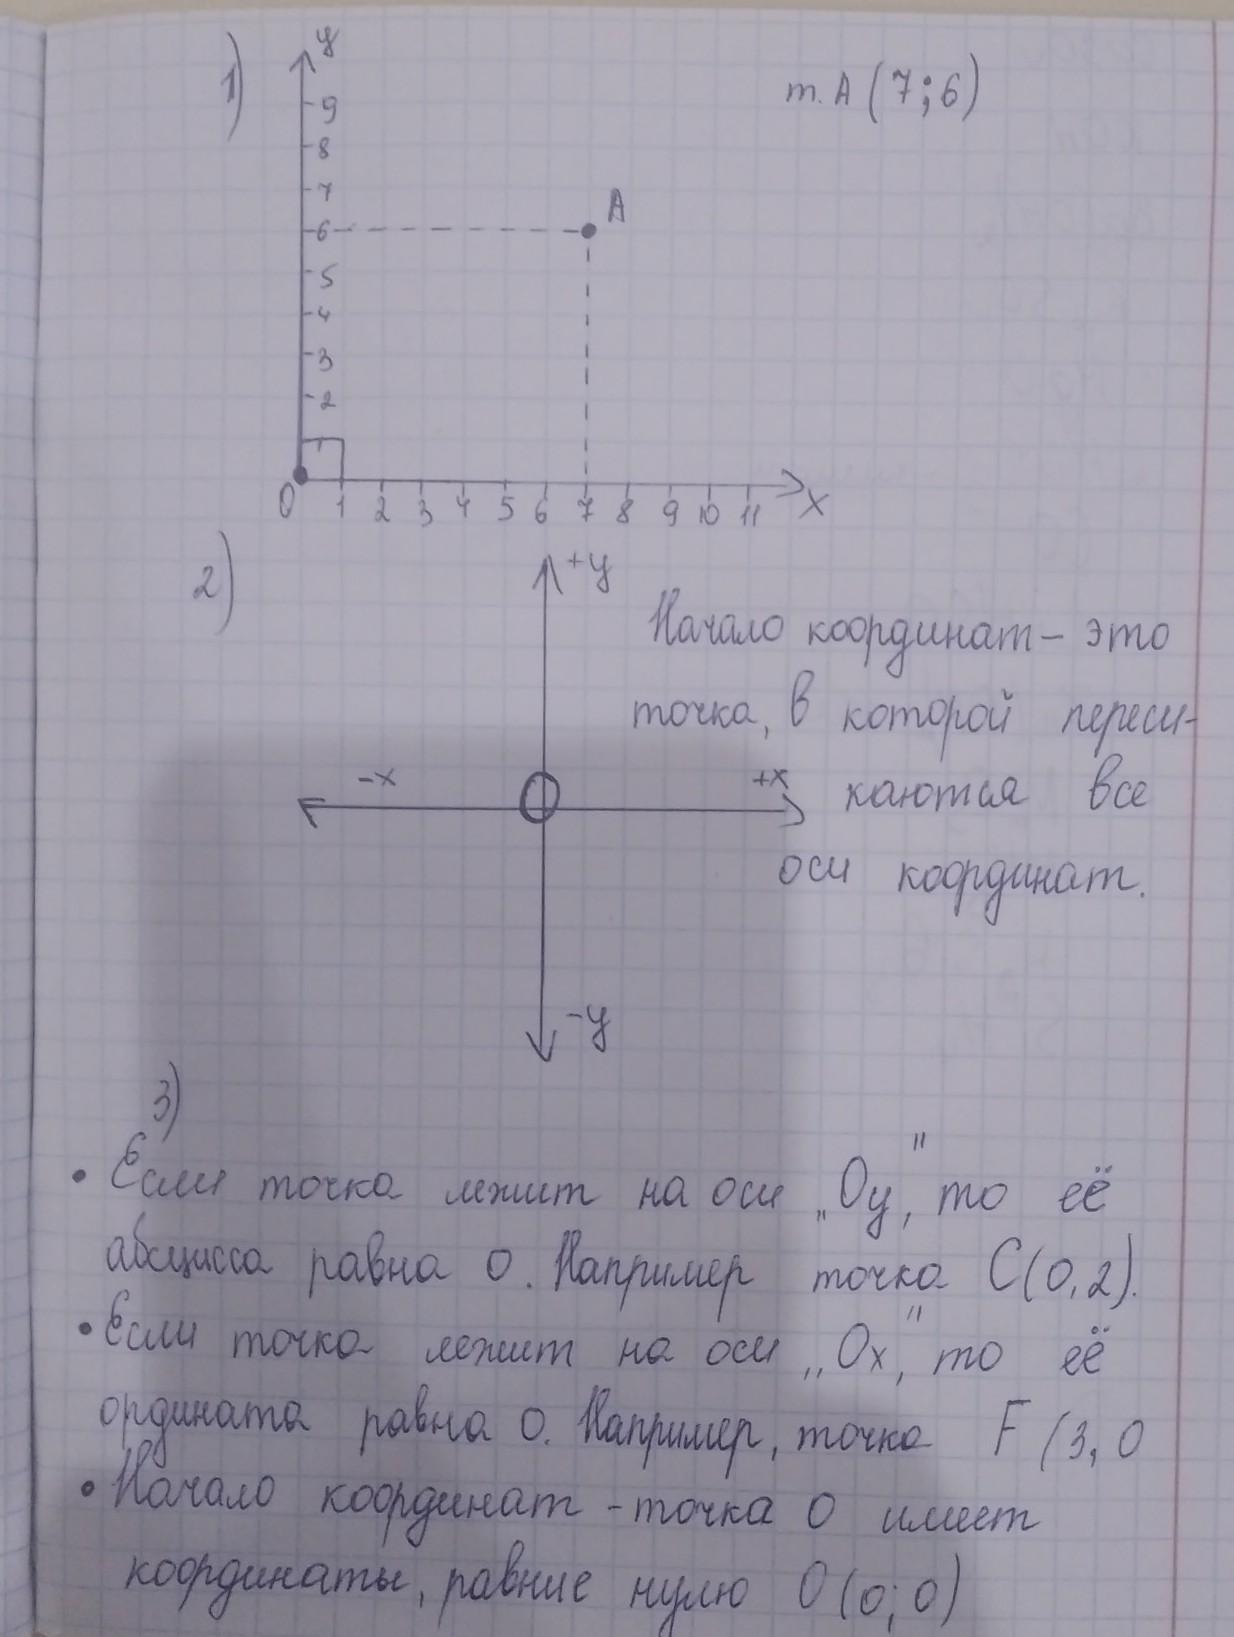 1)
y
т. А (7; 6)
9
8
7
А
6
5
4
3
2
1
0 1 2 3 4 5 6 7 8 9 10 11 x
2)
+y
Начало координат - это
точка, в которой переси-
-x
+x
каются все
0
оси координат.
-y
3)
• Если точка лежит на оси „Оу", то её
абсцисса равна 0. Например точка С(0,2).
• Если точка лежит на оси „Ох", то её
ордината равна 0. Например, точка F (3, 0
• Начало координат - точка 0 имеет
координаты, равние нулю 0 (0; 0)